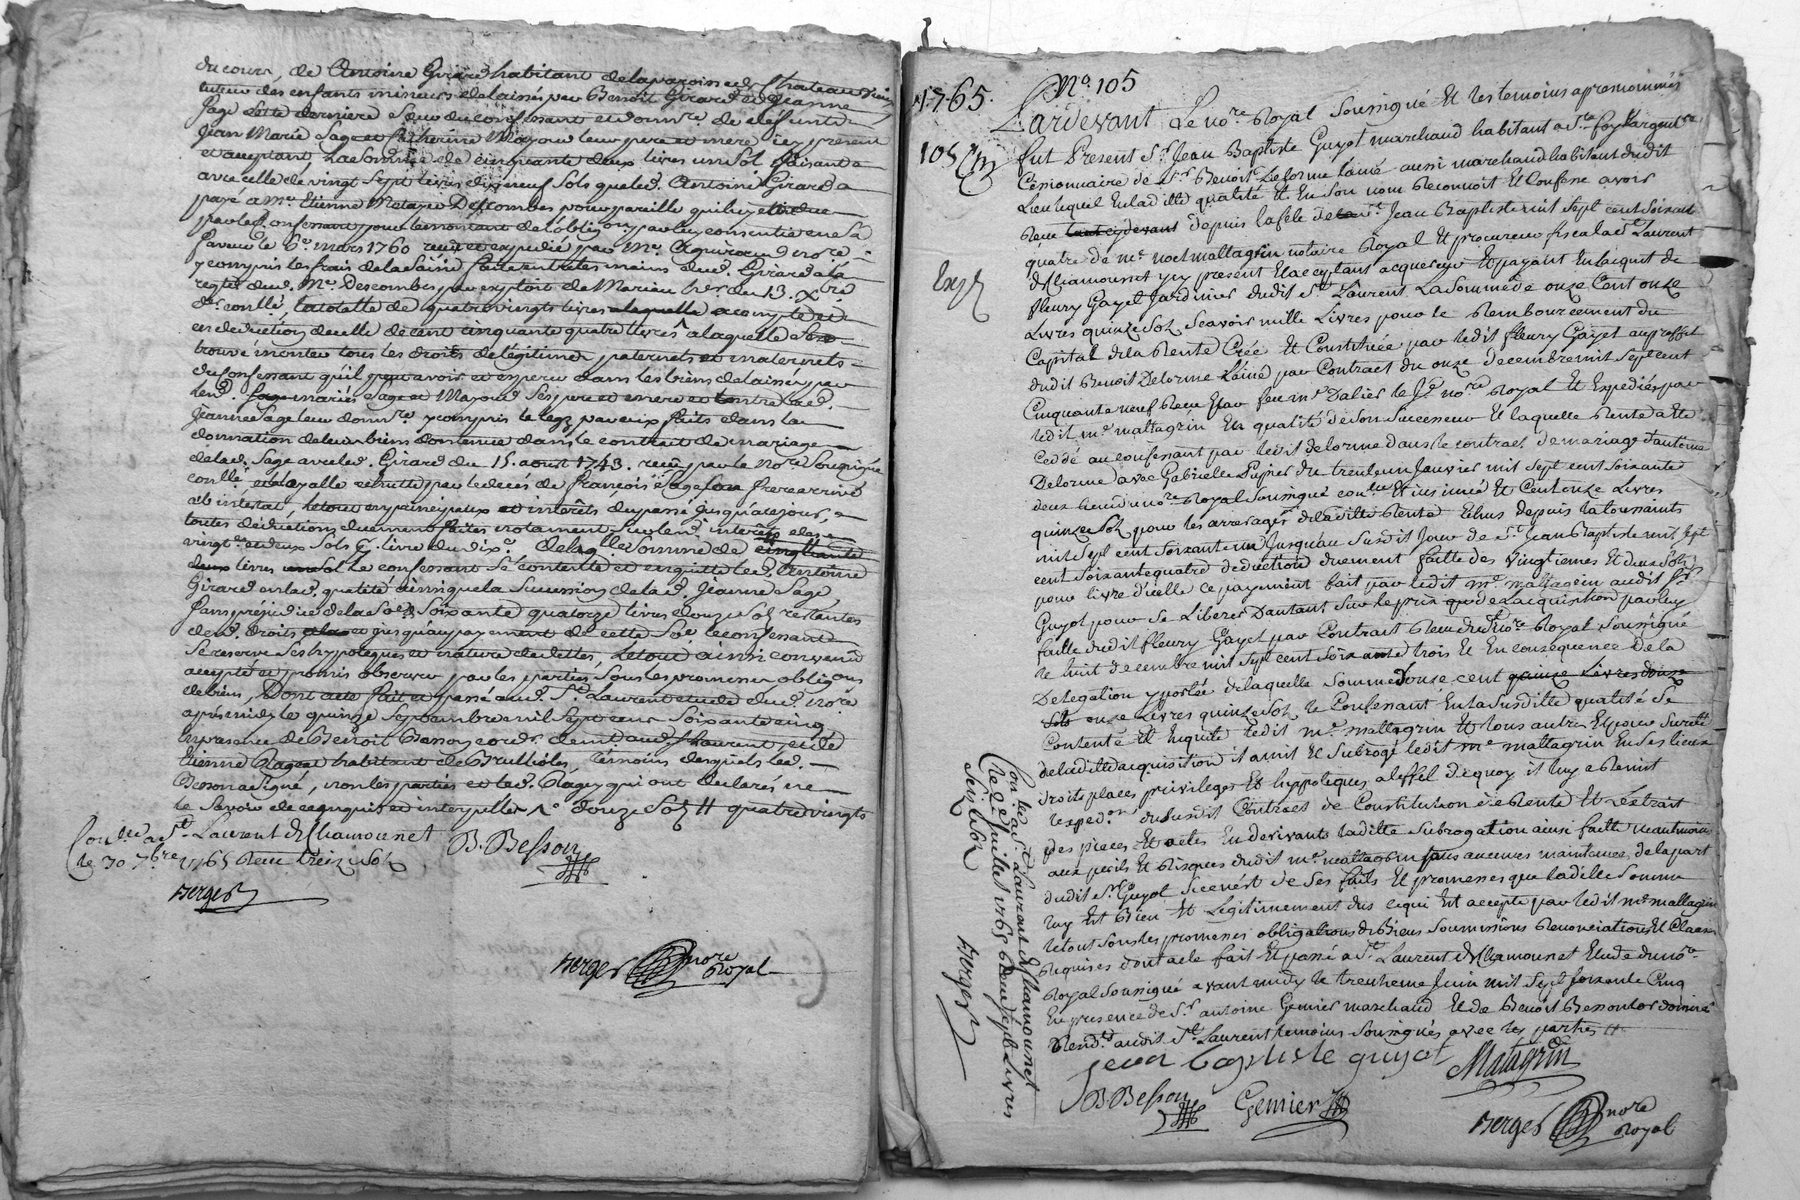 du cours, de Antoine Girard habitant de la paroisse de Chateauvieux
tuteur des enfants mineurs delaissés par Benoit Girard et Jeanne
Sage cette derniere Sœur du confessant et donnre de defunts
Jean Marie Sage et Catherine Mayoud leur pere et mere icy present
et acceptant La Somme de cinquante deux livres un Sol faisant
avec celle de vingt Sept livres dix neuf Sols que led. Antoine Girard a
payé a Me Etienne Descombes pour pareille qui luy etoit due
par led. confessant pour le montant de l'obligõn par luy consentie en Sa
faveur le 6e mars 1760 receue et expediée par Me nore
y compris les frais de la Saisie faite entre les mains dud. Girard a la
reqte dud. Me Descombes par exploit de Marieu du 13. Xbre
der conllé, la totalle de quatre vingts livres a compte et
en deduction de celle de cent cinquante quatre livres a laquelle Se
trouve monter tous les droits de légitimes paternels et maternels
du confessant qu'il peut avoir et esperer dans les biens delaissés par
lesd. mariés Sage et Mayoud Ses pere et mere et contre lad.
Jeanne Sage leur donnre y compris le legz par eux faits dans la
donnation de leurs biens contenue dans le contrait de mariage
de lad. Sage avec led. Girard du 15. aoust 1743. receu par le Nore Sousigné
conllé et celle echutte par le deces de François Sage Son frere arrivé
ab intestat, le tout en principaux et interêts du passé jusqu'a ce jour,
toutes déductions duement faites notament Sur lesd. interêts des
vingte et deux Sols p. livre du dixe de laqlle Somme de cinquante
deux livres un Sol Le confessant Se contente et en quitte led. Antoine
Girard en lad. qualité ainsi que la Succession de lad. Jeanne Sage
Sans préjudice de la Soe de Soixante quatorze livres douze Sols restantes
desd. droits et jusqu'au payement de cette Soe le confessant
Se reserve Ses hypoteques et nature de dettes, Le tout ainsi convenu
accepté et promis observer par les parties Sous les promesses obligõns
de biens, Dont acte fait et passé aud. St Laurent etude dud. nore
après midy le quinze Septembre mil Sept cent Soixante cinq
en presence de Benoit Besson cordr demt aud. St Laurent, et de
Etienne Ragey habitant de Brullioles, témoins desquels led.
Besson a Signé, non les parties et led. Ragey qui ont declarés ne
le Savoir de ce enquis et interpellés /. douze Sols // quatre vingts
Conllé a St Laurent de Chamousset
le 30 7bre 1765 Receu treize Sols
Berger
B. Besson
Berger nore Royal
1765. No. 105
105 Cm
Exp
Pardevant Le nore Royal Sousigné Et les temoins apres nommés
fut Present Sr Jean Baptiste Guyot marchand habitant a Ste foy Largentre
Cessionnaire de Sr Benoit Delorme Lainé aussi marchand habitant dudit
Lieu lequel En ladite qualité Et En Son nom Reconnoit Et Confesse avoir
Receu tout cy devant depuis la fête de St Jean Baptiste mil Sept cent Soixante
quatre de Me Noel mattagrin notaire Royal Et procureur fiscal de St Laurent
de Chamousset y cy present Et acceptant acquereur Et payant En l'acquit de
fleury Gayet Jardinier dudit St Laurent La Somme de onze Cent onze
Livres quinze Sols Scavoir mille Livres pour le Remboursement du
Capital de la Rente Crée Et Constituée par ledit fleury Gayet au proffit
dudit Benoit Delorme Lainé par Contract du onze decembre mil Sept cent
Cinquante neuf Receu par feu Me Dalier le Je nore Royal Et Expediée par
ledit Me mattagrin En qualité de Son Successeur Et laquelle Rente a Eté
Ceddé au confessant par ledit Delorme dans le contract de mariage d'antoine
Delorme avec Gabrielle Dupier du trente un Janvier mil Sept cent Soixante
deux Receu nore Royal Sousigné conllé Et insinué Et Cent onze Livres
quinze Sols pour les arrerages de ladite Rente Echus depuis la toussaints
mil Sept cent Soixante un Jusqu'au Susdit Jour de St Jean Baptiste mil Sept
cent Soixante quatre deduction duement faitte des Vingtiemes Et deux Sols
pour livre d'icelle ce payement fait par ledit Me mattagrin audit Sr
Guyot pour Se Liberer D'autant Sur le prix de l'acquisition par luy
faitte dudit fleury Gayet par Contrait Receu dudit nore Royal Sousigné
le huit decembre mil Sept cent Soixante trois Et En consequence de la
Delegation y portée de laquelle Somme d'onze cent quinze Livres douze
Sols onze Livres quinze Sols le Confessant En la Susdite qualité Se
Contente Et En quitte ledit Me mattagrin Et tous autres Et pour Sureté
de ladite acquisition il a mit Et Subrogé ledit Me mattagrin En Ses lieux
droits places privileges Et hyppoteques a l'effet de quoy il luy a Remit
l'expedon du Susdit Contract de Constitution de Rente Et L'extrait
des pieces Et actes En derivants ladite Subrogation ainsi faitte neantmoins
aux perils Et Risques dudit Me mattagrin Sans aucunes maintenues de la part
dudit Sr Guyot Si ce n'est de Ses faits Et promesses que ladite Somme
luy Est Bien Et Legitimement due ce qui Est accepté par ledit Me mattagrin
le tout Sous les promesses obligations de Biens Soumissions Renonciations Et Clauses
Requises dont acte fait Et passé a St Laurent de Chamousset Etude du nore
Royal Sousigné avant midy le trentieme Juin mil Sept Soixante Cinq
En presence de Sr antoine Gemier marchand Et de Benoit Besson cordonnier
Rendts audit St Laurent temoins Sousignés avec les parties //.
Conllé a St Laurent de Chamousset
le 2e Juillet 1765 Receu Sept Livres
Seize Sols
Berger
jean baptiste guyot
Matagrin
B. Besson
Gemier
Berger nore Royal